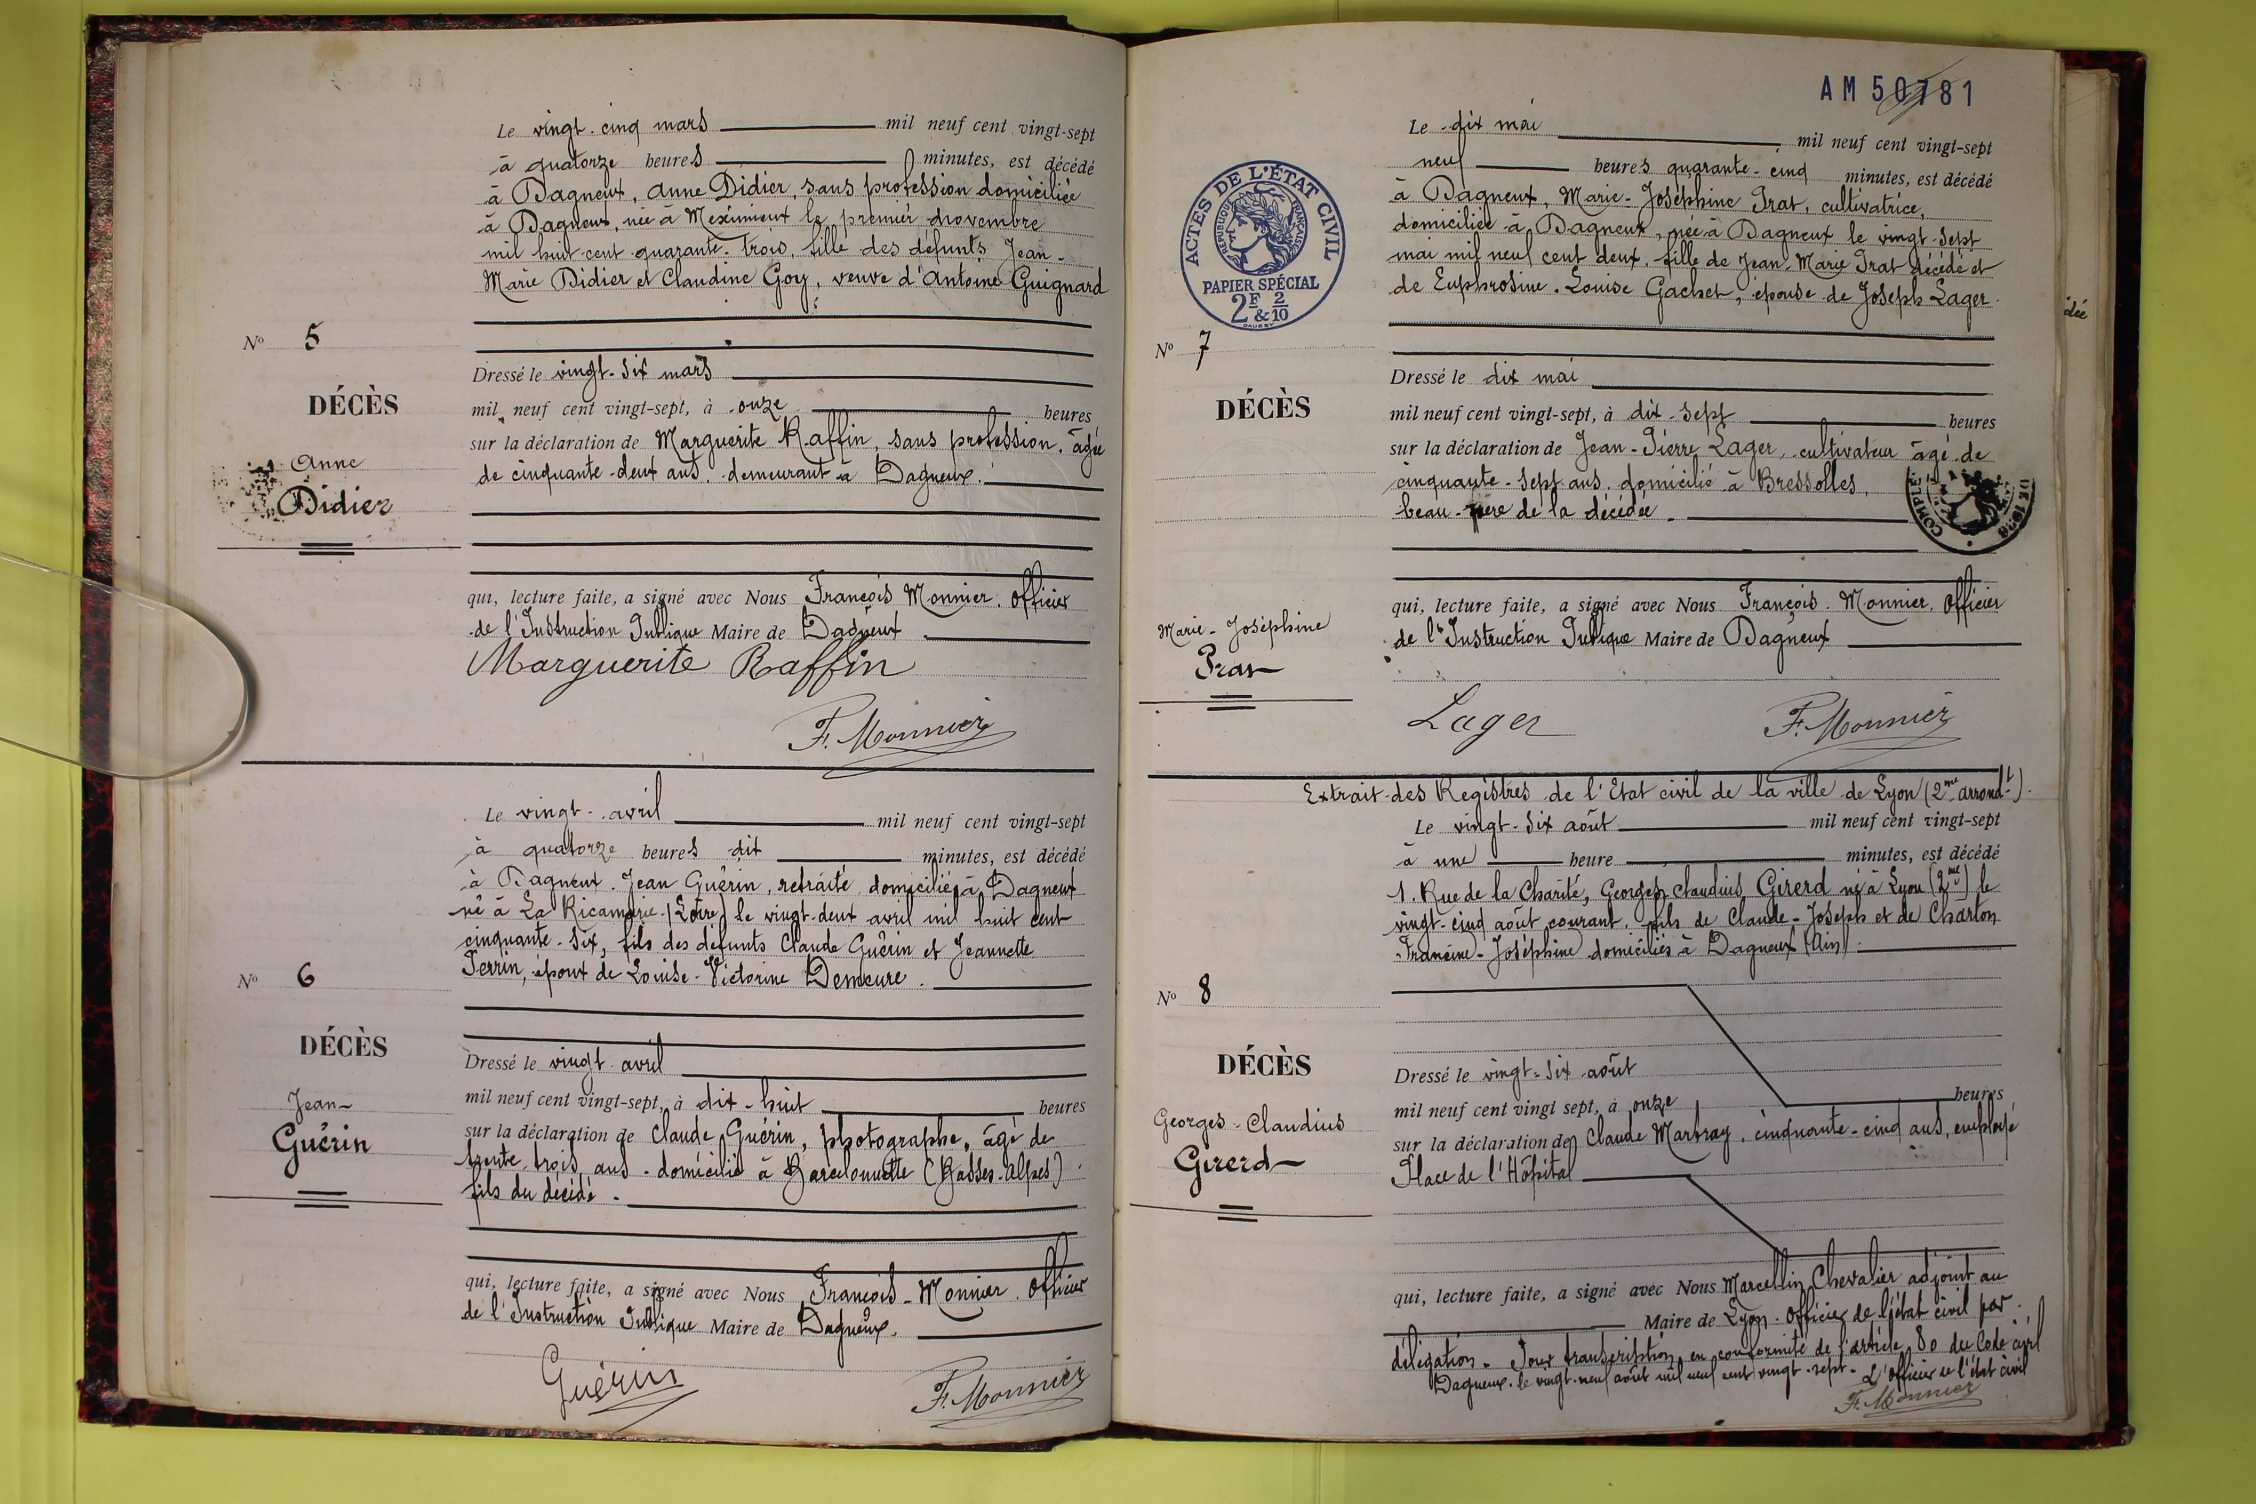 Le vingt-cinq mars mil neuf cent vingt-sept
à quatorze heures minutes, est décédé
à Dagneux, Anne Didier, sans profession domiciliée
à Dagneux, née à Meximieux le premier novembre
mil huit cent quarante-trois, fille des défunts Jean-
Marie Didier et Claudine Goy, veuve d'Antoine Guignard
N° 5
Dressé le vingt-six mars
DÉCÈS
mil neuf cent vingt-sept, à onze heures
sur la déclaration de Marguerite Raffin, sans profession, âgée
Anne
de cinquante-deux ans, demeurant à Dagneux.
Didier
qui, lecture faite, a signé avec Nous François Monnier, Officier
de l'Instruction Publique Maire de Dagneux
Marguerite Raffin
F. Monnier
Le vingt avril mil neuf cent vingt-sept
à quatorze heures dix minutes, est décédé
à Dagneux, Jean Guérin, retraité, domicilié à Dagneux
né à La Ricamarie (Loire) le vingt-deux avril mil huit cent
cinquante-six, fils des défunts Claude Guérin et Jeannette
Perrin, époux de Louise-Victorine Demeure.
N° 6
DÉCÈS
Dressé le vingt avril
mil neuf cent vingt-sept, à dix-huit heures
Jean
Guérin
sur la déclaration de Claude Guérin, photographe, âgé de
trente-trois ans, domicilié à Barcelonnette (Basses-Alpes)
fils du décédé.
qui, lecture faite, a signé avec Nous François Monnier, Officier
de l'Instruction Publique Maire de Dagneux.
Guérin
F. Monnier
AM 50781
ACTES DE L'ÉTAT CIVIL
RÉPUBLIQUE FRANÇAISE
PAPIER SPÉCIAL
2F & 2/10
Le dix mai mil neuf cent vingt-sept
neuf heures quarante-cinq minutes, est décédé
à Dagneux, Marie-Joséphine Prat, cultivatrice,
domiciliée à Dagneux, née à Dagneux le vingt-sept
mai mil neuf cent deux, fille de Jean-Marie Prat décédé et
de Euphrosine-Louise Gachet, épouse de Joseph Lager.
N° 7
Dressé le dix mai
DÉCÈS
mil neuf cent vingt-sept, à dix-sept heures
sur la déclaration de Jean-Pierre Lager, cultivateur âgé de
cinquante-sept ans, domicilié à Bressolles,
beau-père de la décédée.
qui, lecture faite, a signé avec Nous François Monnier, Officier
Marie-Joséphine
de l'Instruction Publique Maire de Dagneux
Prat
Lager
F. Monnier
Extrait des Registres de l'Etat civil de la ville de Lyon (2me arrondt).
Le vingt-six août mil neuf cent vingt-sept
à une heure minutes, est décédé
1, Rue de la Charité, Georges Claudius Girerd né à Lyon (2me) le
vingt-cinq août courant, fils de Claude-Joseph et de Charton
Francine-Joséphine domiciliés à Dagneux (Ain).
N° 8
DÉCÈS
Dressé le vingt-six août
mil neuf cent vingt sept, à onze heures
Georges-Claudius
sur la déclaration de Claude Marbray, cinquante-cinq ans, employé
Girerd
Place de l'Hôpital
qui, lecture faite, a signé avec Nous Marcellin Chevalier adjoint au
Maire de Lyon. Officier de l'état civil par
délégation. Pour transcription, en conformité de l'article 80 du Code civil
Dagneux, le vingt-neuf août mil neuf cent vingt-sept. L'Officier de l'état civil
F. Monnier